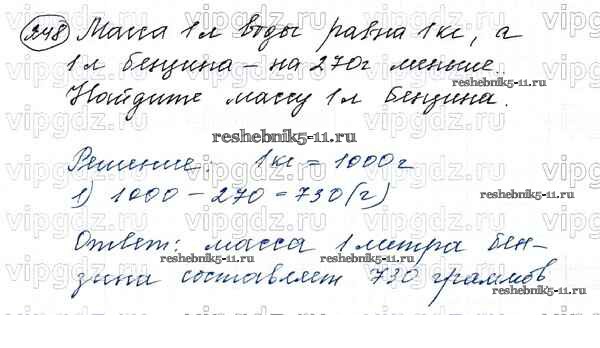 248 Масса 1л воды равна 1кг, а
1л бензина – на 270г меньше.
Найдите массу 1л бензина.
reshebnik5-11.ru
reshebnik5-11.ru
Решение: 1кг = 1000г
1) 1000 – 270 = 730(г)
reshebnik5-11.ru
Ответ: масса 1 литра бен-
reshebnik5-11.ru
reshebnik5-11.ru
зина составляет 730 граммов
reshebnik5-11.ru
vipgdz.ru vipgdz.ru vipgdz.ru vipgdz.ru